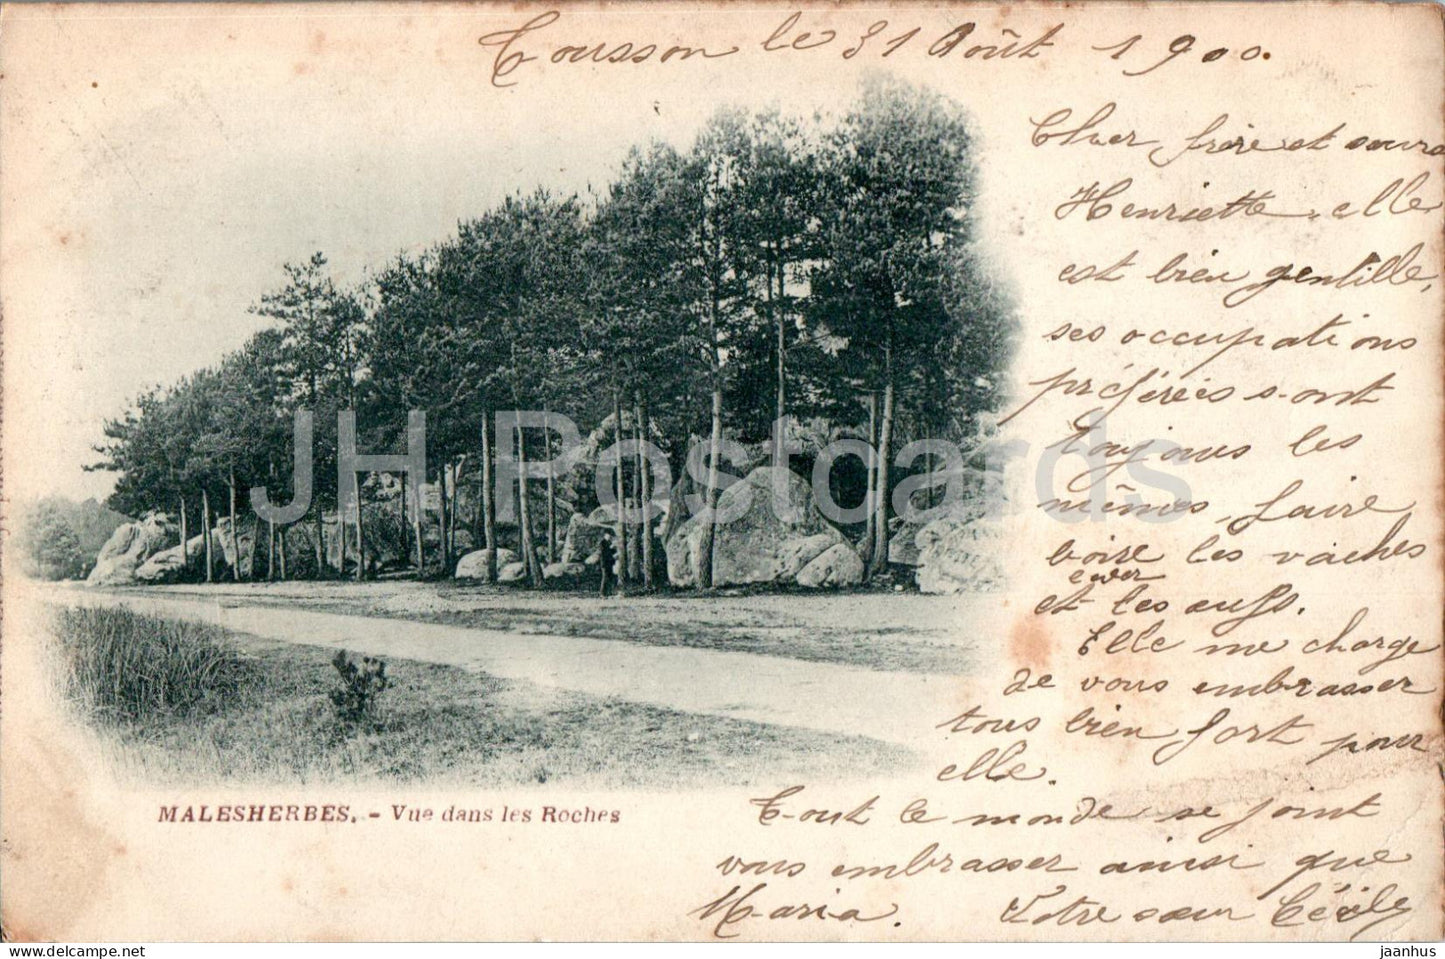 Tousson le 31 Août 1900.
Cher frère et sœurs
Henriette elle
est bien gentille,
ses occupations
préférées sont
toujours les
mêmes, faire
boire les vaches
et lever les œufs.
Elle me charge
de vous embrasser
tous bien fort pour
elle.
Tout le monde se joint
vous embrasser ainsi que
Maria. Votre sœur Cécile
MALESHERBES. - Vue dans les Roches
JH Postcards
jaanhus